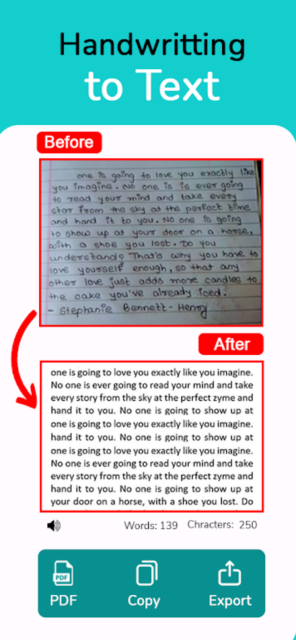 Handwritting
to Text
Before
one is going to love you exactly like
you imagine. No one is is ever going
to read your mind and take every
star from the sky at the perfect time
and hand it to you. No one is going
to show up at your door on a horse,
with a shoe you lost. Do you
understand? That's why you have to
love yourself enough, so that any
other love just adds more candles to
the cake you've already iced.
- Stephanie Bennett-Henry
After
one is going to love you exactly like you imagine.
No one is ever going to read your mind and take
every story from the sky at the perfect zyme and
hand it to you. No one is going to show up at
one is going to love you exactly like you imagine.
hand it to you. No one is going to show up at
one is going to love you exactly like you imagine.
No one is ever going to read your mind and take
every story from the sky at the perfect zyme and
hand it to you. No one is going to show up at
your door on a horse, with a shoe you lost. Do
Words: 139 Chracters: 250
PDF
PDF Copy Export